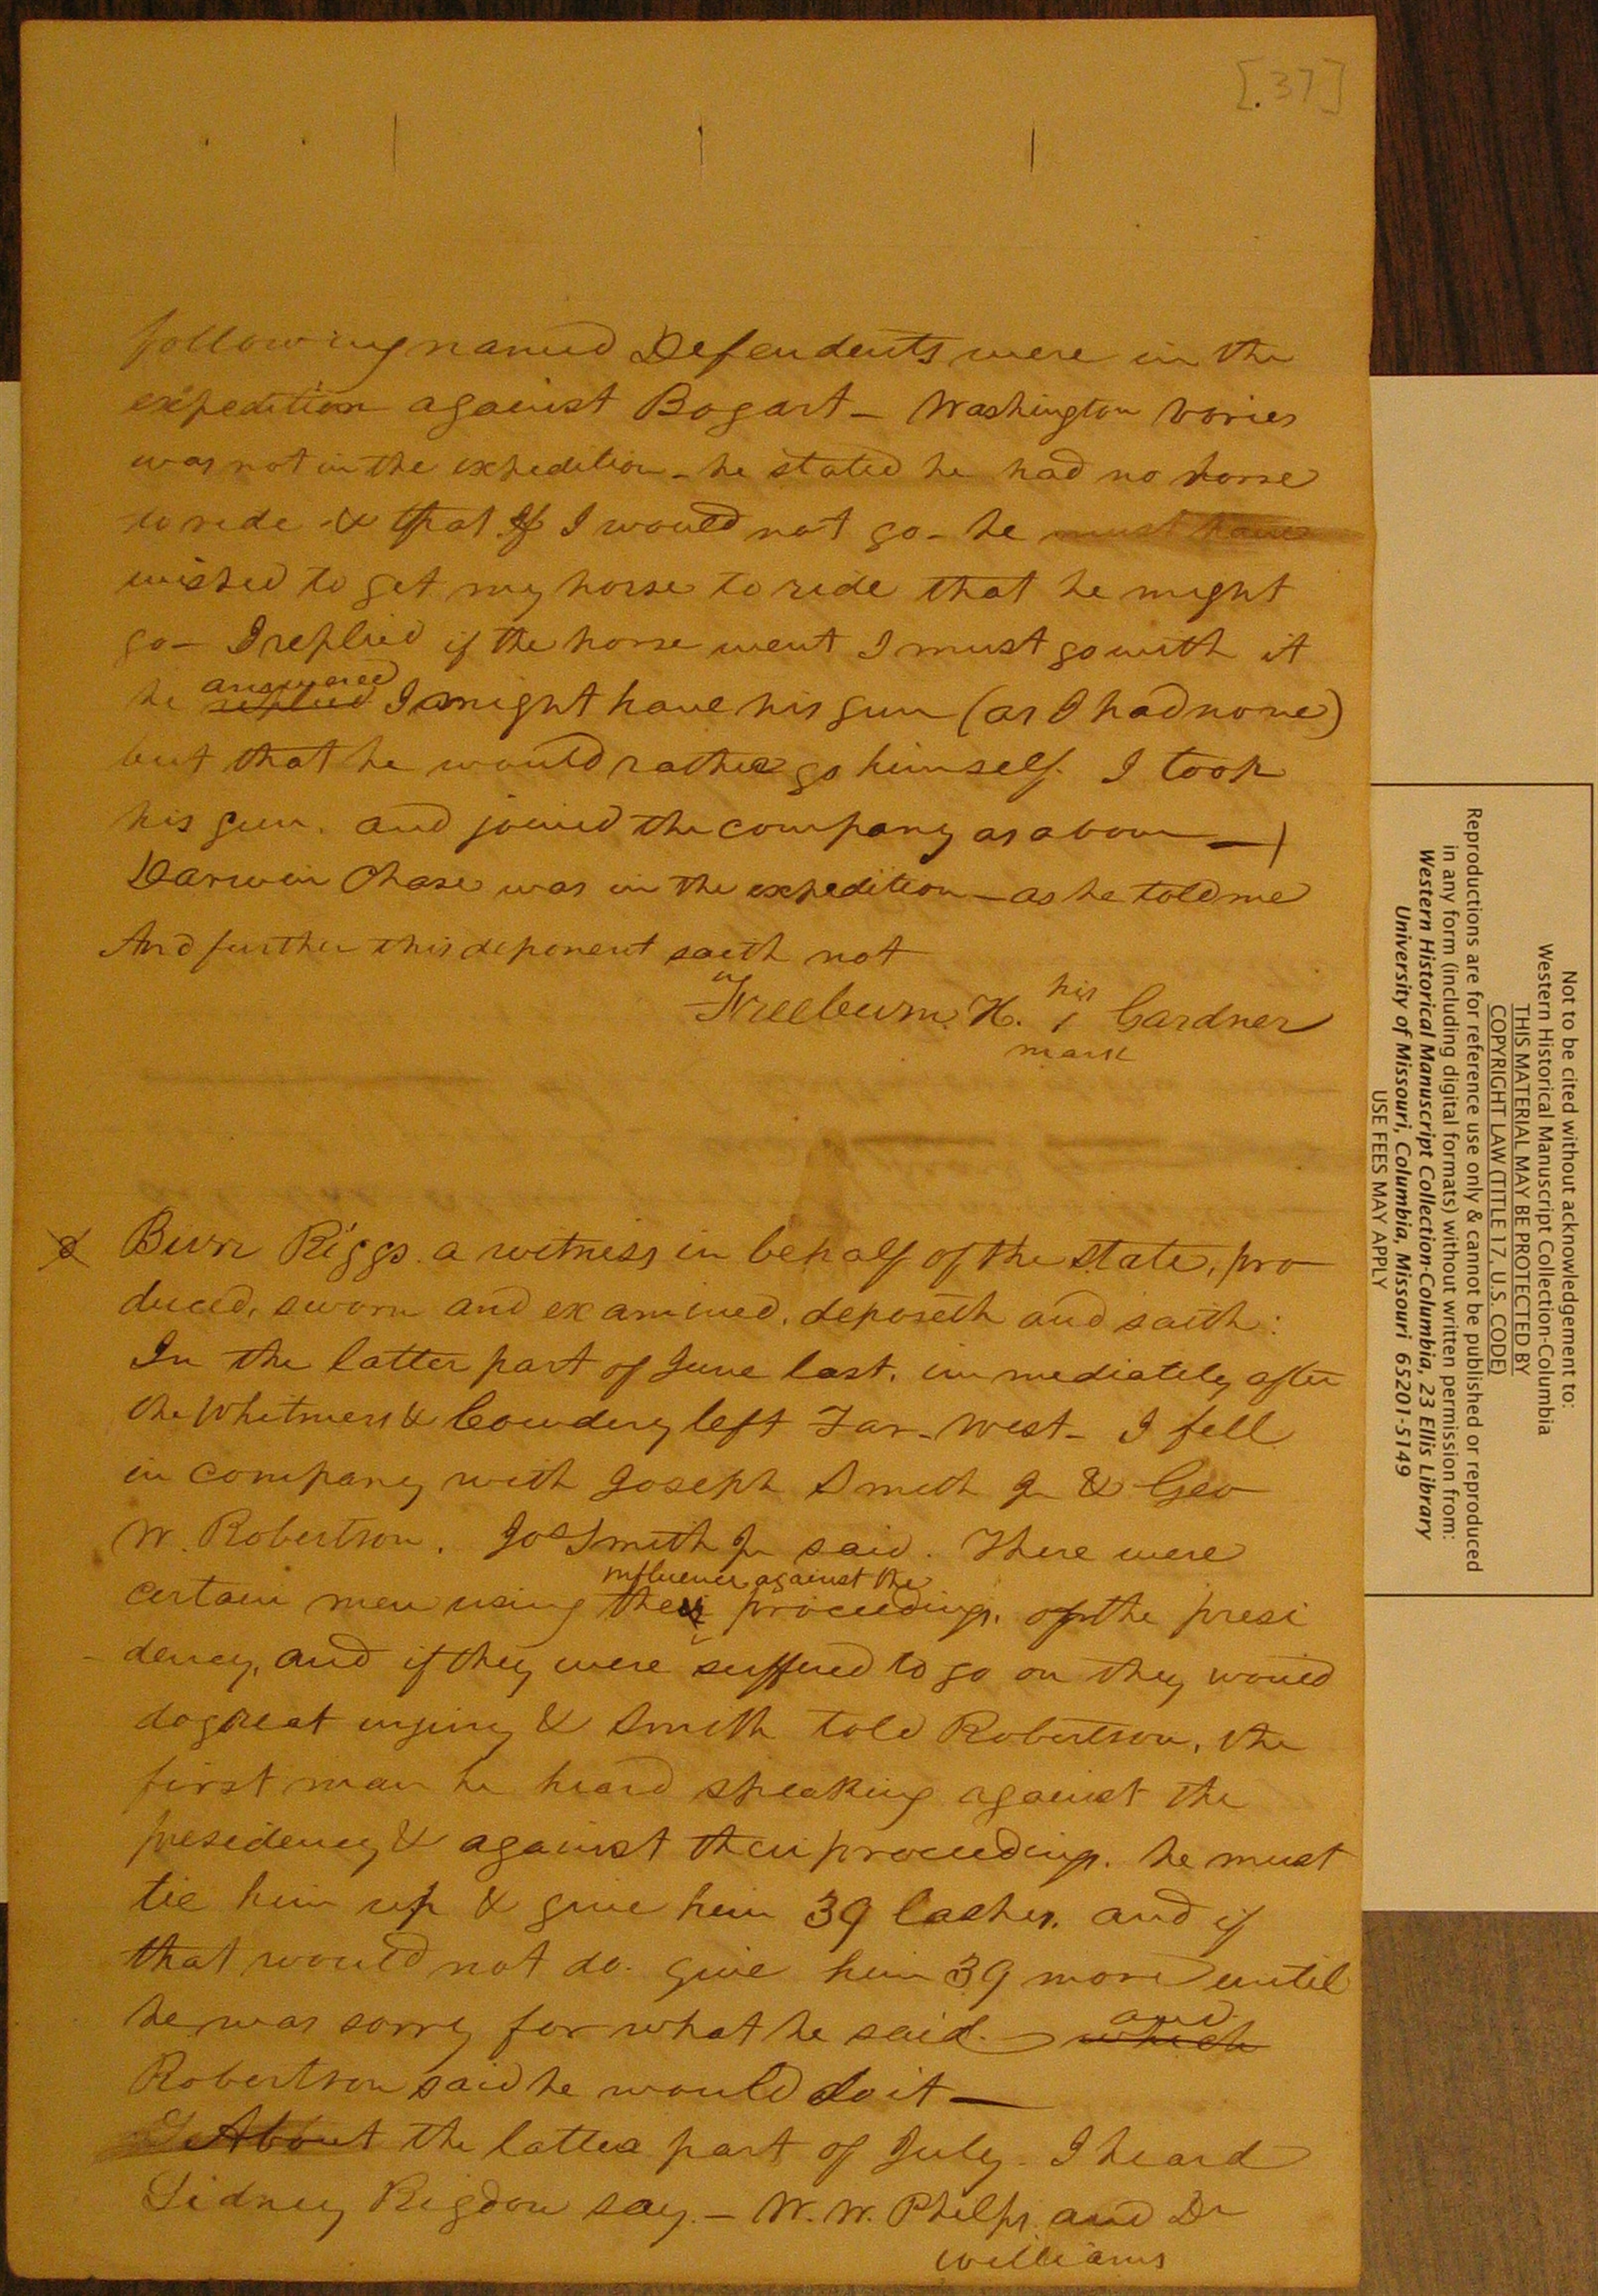 [.37]
following named Defendents were in the
expedition against Bogart – Washington Vories
was not in the expedition – he stated he had no horse
to ride & that if I would not go – he must have
wished to get my horse to ride that he might
go – I replied if the horse went I must go with it
answered
he replied I might have his gun (as I had none)
but that he would rather go himself. I took
his gun. and joined the company as above –
Darwin Chase was in the expedition – as he told me
And further this deponent saith not
Freeburn. H. his 1 Gardner
mark
Burr Riggs. a witness in behalf of the state, pro
duced, sworn and examined, deposeth and saith:
In the latter part of June last, immediately after
the Whitmers & Cowdery left Far-West – I fell
in company with Joseph Smith Jr & Geo
W. Robertson. Jos Smith Jr said. There were
influence against the
certain men using their proceedings. of the presi
dency, and if they were suffered to go on they would
do great injury & Smith told Robertson, the
first man he heard speaking against the
presidency & against their proceedings. he must
tie him up & give him 39 lashes. and if
that would not do. give him 39 more until
he was sorry for what he said. –
and
which
Robertson said he would do it –
About the latter part of July – I heard
Sidney Rigdon say. – W. W. Phelps and Dr
Williams
Not to be cited without acknowledgement to:
Western Historical Manuscript Collection-Columbia
THIS MATERIAL MAY BE PROTECTED BY
COPYRIGHT LAW (TITLE 17, U.S. CODE)
Reproductions are for reference use only & cannot be published or reproduced
in any form (including digital formats) without written permission from:
Western Historical Manuscript Collection-Columbia, 23 Ellis Library
University of Missouri, Columbia, Missouri 65201-5149
USE FEES MAY APPLY